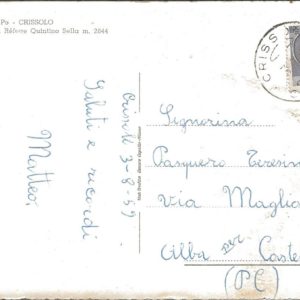 Po - CRISSOLO
Réfuge Quintino Sella m. 2644
CRISS
Crissolo 3-8-59
Saluti e ricordi
Matteo,
Signorina
Pasquero Teresin
Via Maglia
Alba per Caste
(PC)